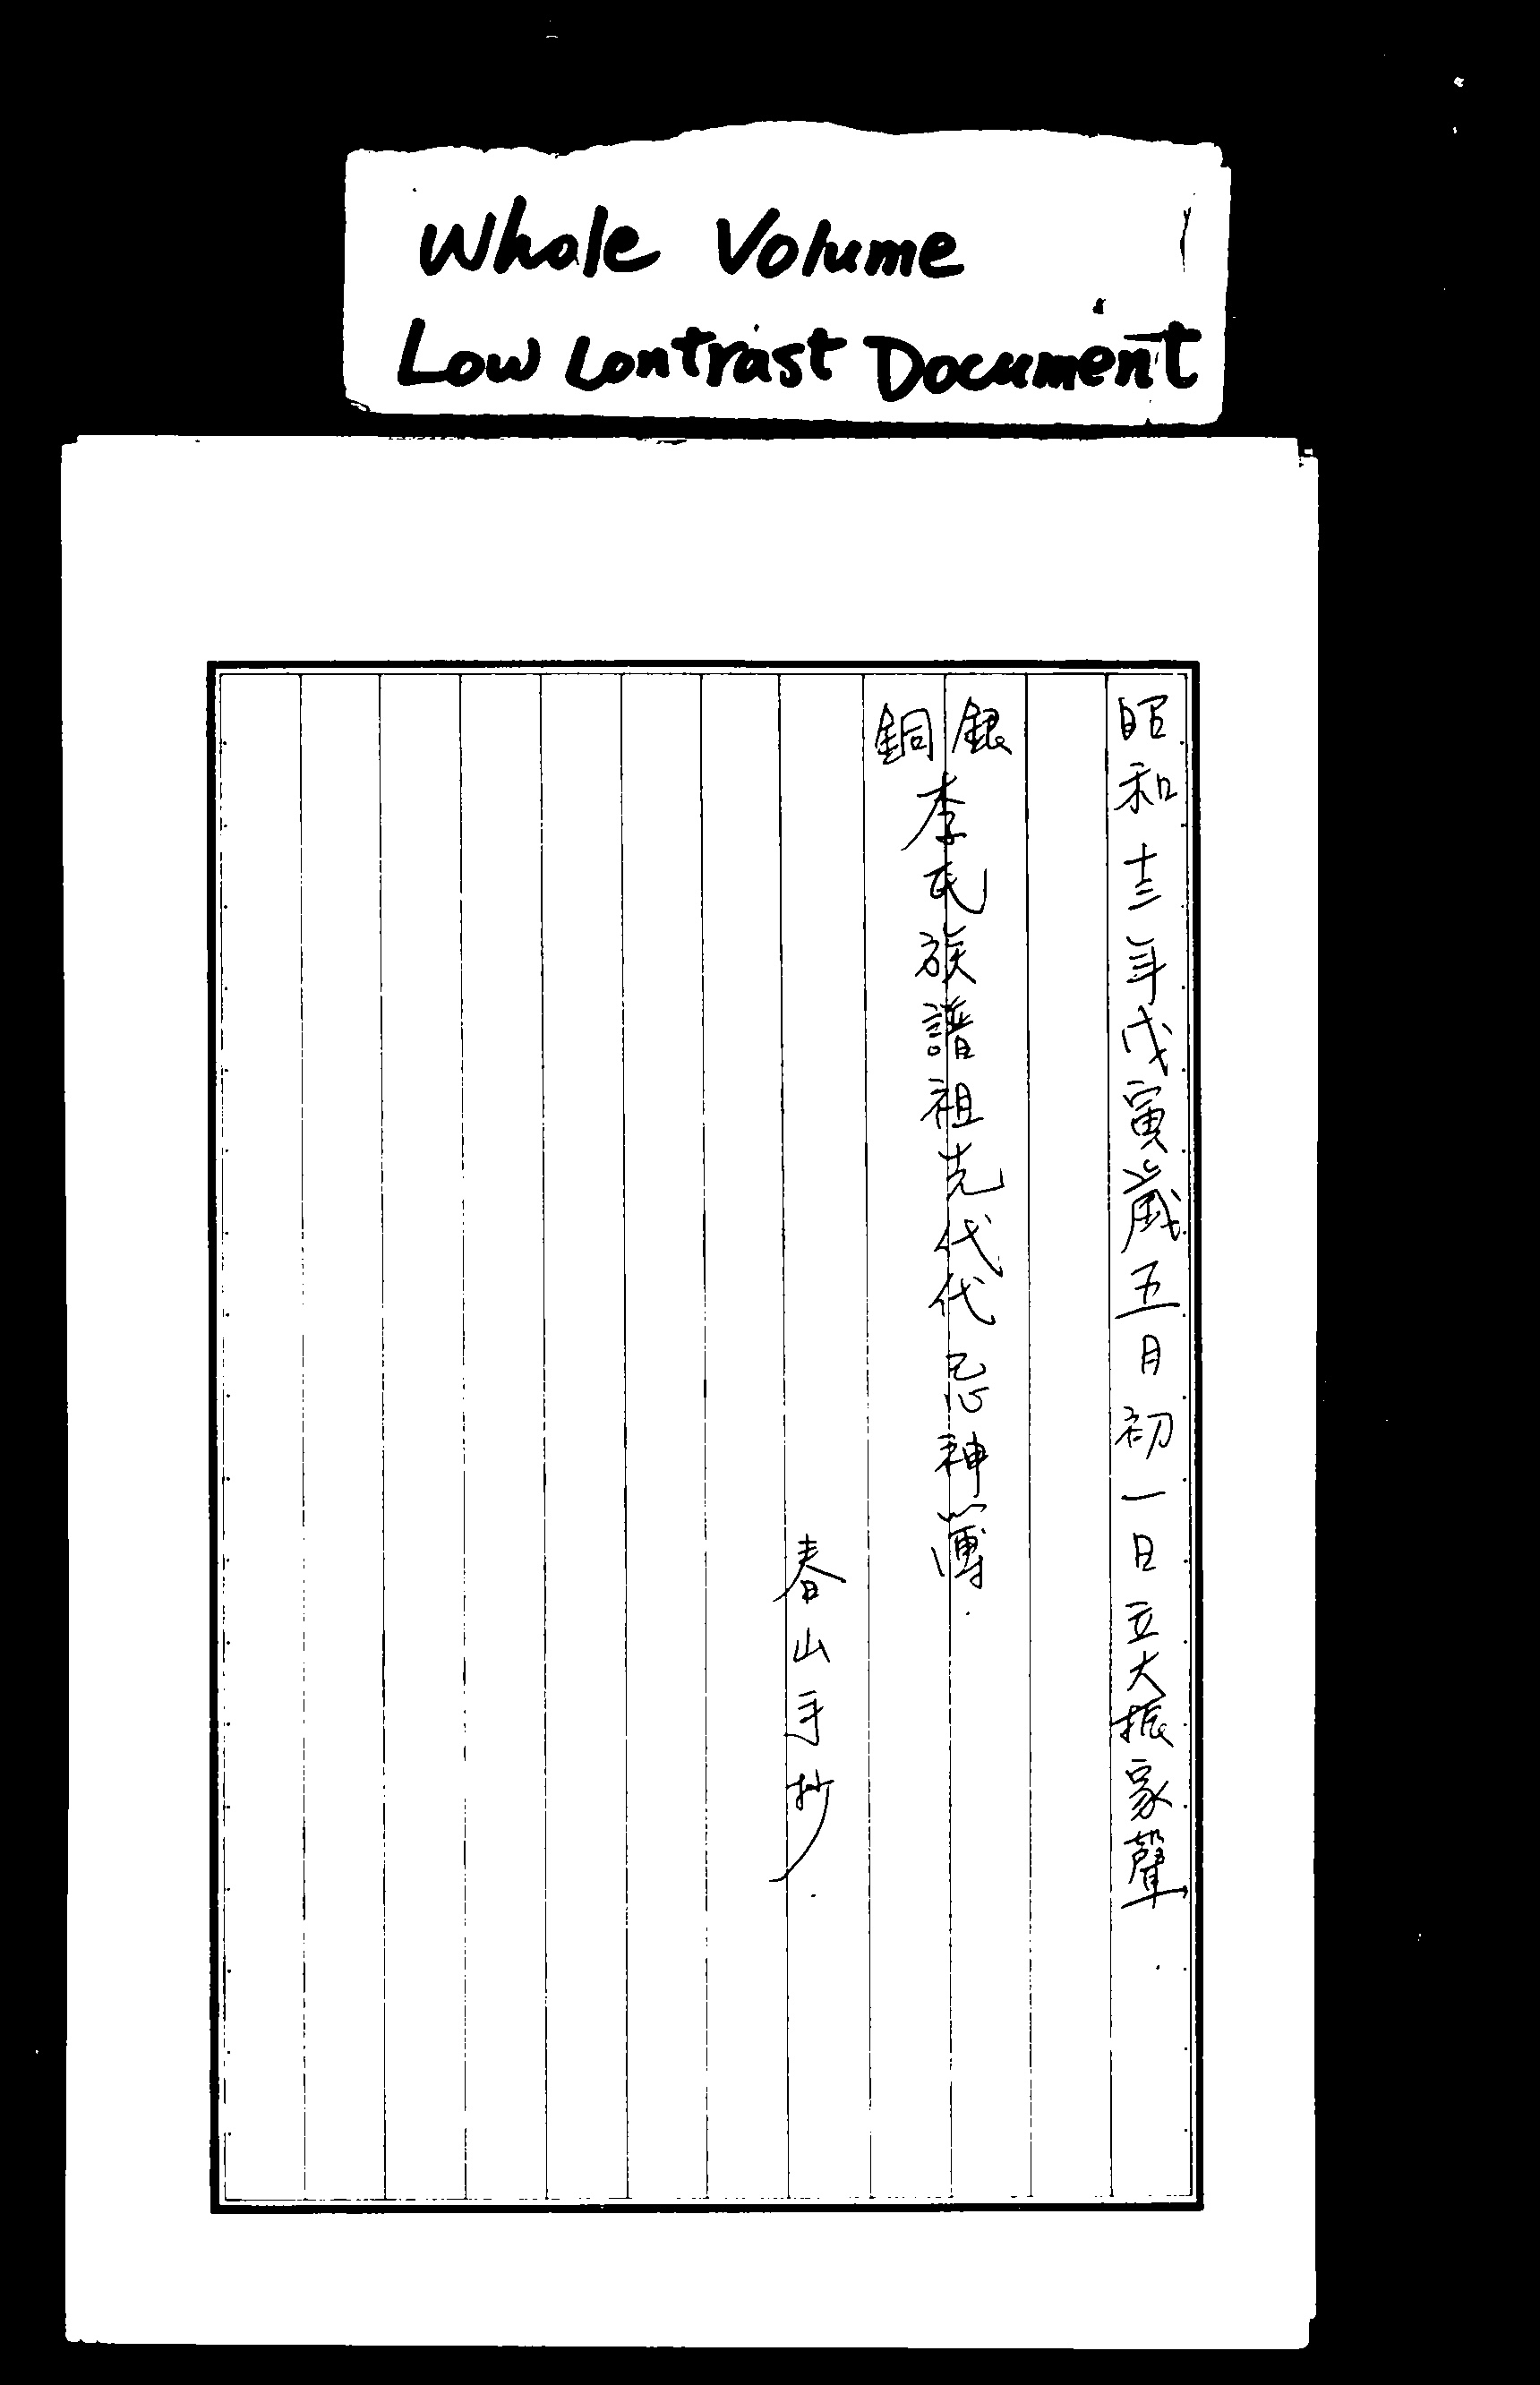 Whole Volume
Low Contrast Document
昭和十三年戊寅歲五月初一日立大振家聲.
銀銅李氏族譜祖先代代忌神簿.
春山手抄.